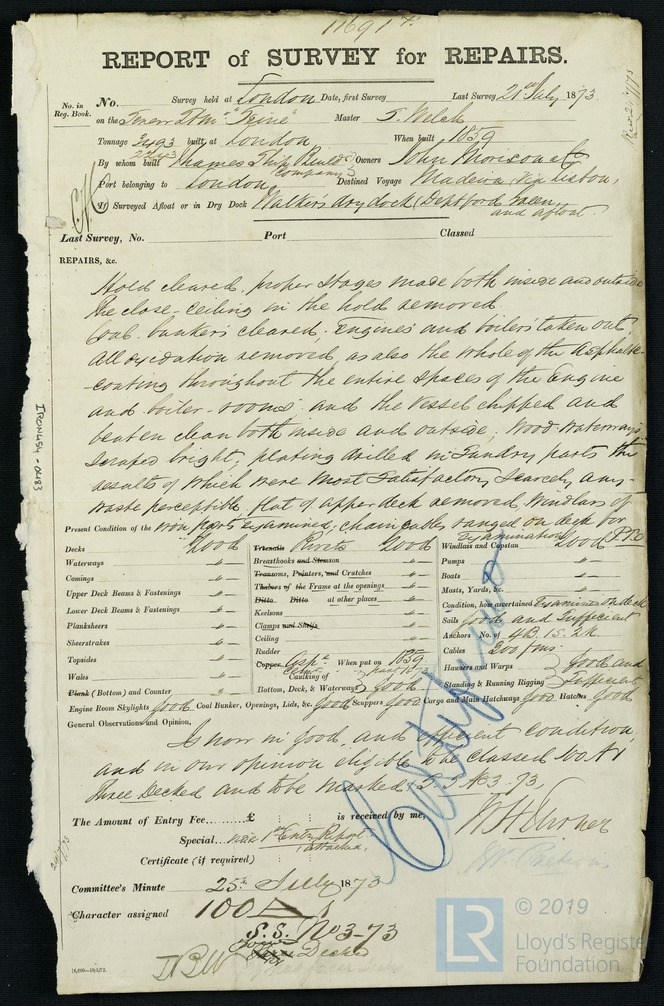 11691
REPORT of SURVEY for REPAIRS.
No. in Reg. Book. No. Survey held at London Date, first Survey Last Survey 21st July 1873
on the Screw Stmr Master T. Welch
Tonnage 3493 built at London When built 1859
2243
By whom built Thames Ship Build Company Owners John Morison & Co
Port belonging to London Destined Voyage Madeira via Lisbon,
If Surveyed Afloat or in Dry Dock Walkers dry dock (Deptford Green and afloat.
Last Survey, No. Port Classed
REPAIRS, &c.
Hold cleared, proper stages made both inside and outside
the close-ceiling in the hold removed.
Coal bunkers cleared, Engines and boilers taken out,
All oxidation removed, as also the whole of the Asphalte-
-coating throughout the entire spaces of the Engine
and boiler-rooms and the Vessel chipped and
beaten clean both inside and outside, wood waterways
scraped bright, plating drilled in Sundry parts the
results of which were most satisfactory, scarcely any-
waste perceptible, flat of upper deck removed, Windlass &c
Present Condition of the iron parts examined, chain cables ranged on deck for
examination P.T.O
Decks Good
Waterways "
Comings "
Upper Deck Beams & Fastenings "
Lower Deck Beams & Fastenings "
Planksheers "
Sheerstrakes "
Topsides "
Wales "
Plank (Bottom) and Counter "
Treenails Rivets Good
Breasthooks and Stemson "
Transoms, Pointers, and Crutches "
Timbers of the Frame at the openings "
Ditto Ditto at other places "
Keelsons "
Clamps and Shelfs "
Ceiling "
Rudder "
Copper When put on 1859
Caulking of Bottom, Deck, & Waterways Good
Windlass and Capstan Good
Pumps "
Boats "
Masts, Yards, &c. "
Condition, how ascertained Examined on deck
Sails Good and Sufficient
Anchors No. of 4B. 1S. 2K
Cables 300 fms.
Hawsers and Warps Good and
Standing & Running Rigging Sufficient
Engine Room Skylights Good Coal Bunker, Openings, Lids, &c. Good Scuppers Good Cargo and Main Hatchways Good Hatches Good
General Observations and Opinion,
Is now in good, and efficient condition,
and in our opinion eligible to be classed 100 A1
Three Decked and to be marked S.S No3-73,
Certificate
The Amount of Entry Fee......£ is received by me,
Special...... 1st Entry Report attached.
Certificate (if required)
Committee's Minute 25th July 1873
Character assigned 100 A 1
S.S. No 3-73
Decked
IRON454-0483
14,000—10/6/72.
LR © 2019
Lloyd's Register
Foundation